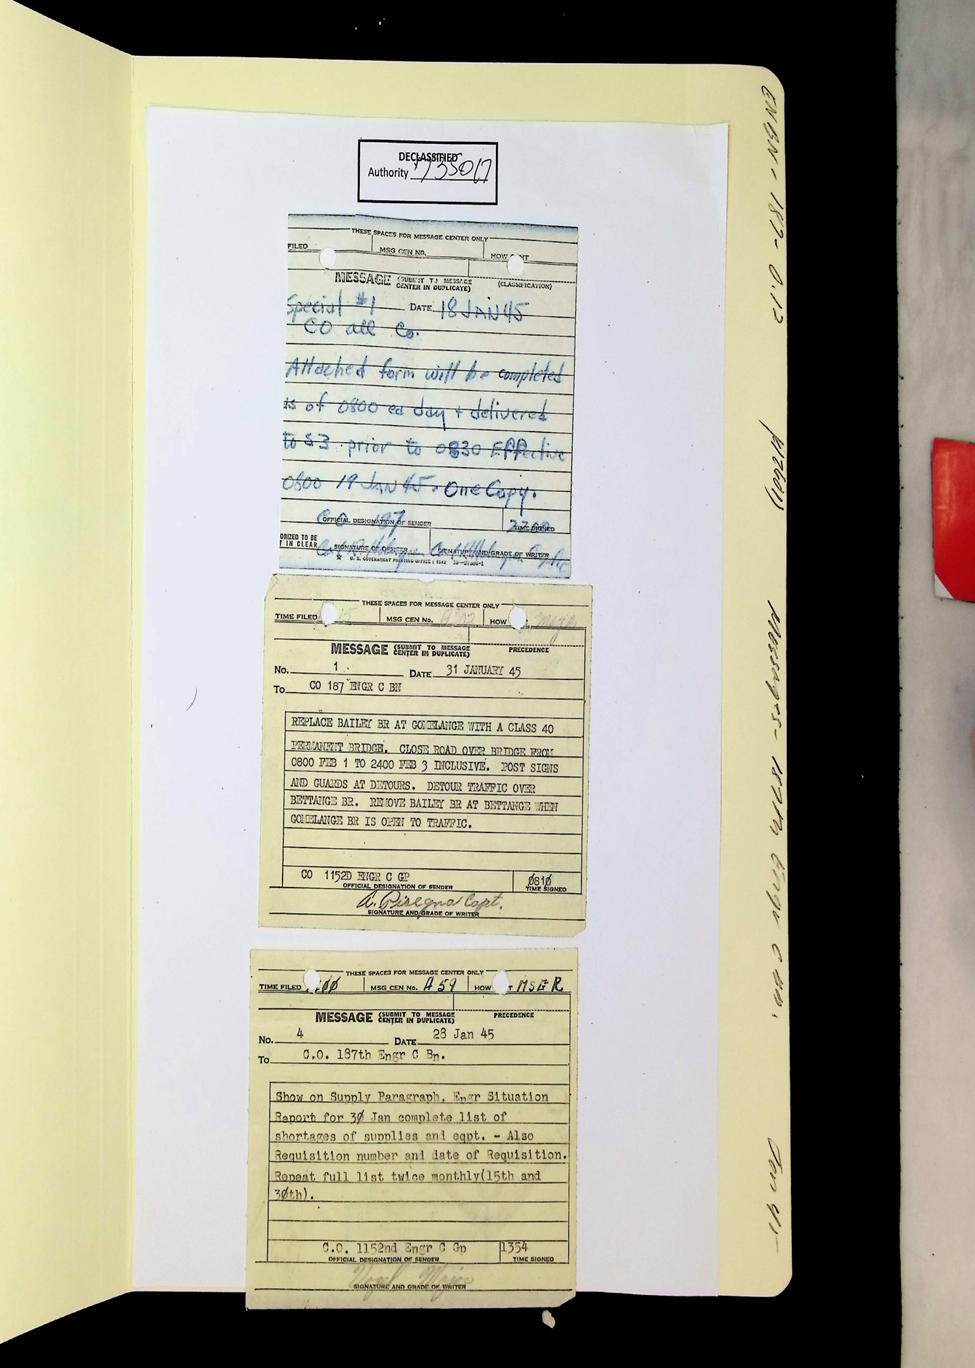 DECLASSIFIED
Authority 735017
THESE SPACES FOR MESSAGE CENTER ONLY
FILED MSG CEN NO. HOW NT
MESSAGE (SUBMIT TO MESSAGE CENTER IN DUPLICATE) (CLASSIFICATION)
Special #1 DATE 18 JAN 45
CO all Co.
Attached form will be completed
as of 0800 ea day + delivered
to S3 prior to 0830 Effective
0800 19 JAN 45. One Copy.
CO 187
OFFICIAL DESIGNATION OF SENDER TIME SIGNED
ORIZED TO BE
T IN CLEAR SIGNATURE OF OFFICER SIGNATURE AND GRADE OF WRITER
U. S. GOVERNMENT PRINTING OFFICE : 1942
THESE SPACES FOR MESSAGE CENTER ONLY
TIME FILED MSG CEN No. HOW
MESSAGE (SUBMIT TO MESSAGE CENTER IN DUPLICATE) PRECEDENCE
No. 1 DATE 31 JANUARY 45
To CO 187 ENGR C BN
REPLACE BAILEY BR AT GOMELANGE WITH A CLASS 40
PERMANENT BRIDGE. CLOSE ROAD OVER BRIDGE FROM
0800 FEB 1 TO 2400 FEB 3 INCLUSIVE. POST SIGNS
AND GUARDS AT DETOURS. DETOUR TRAFFIC OVER
BETTANGE BR. REMOVE BAILEY BR AT BETTANGE WHEN
GOMELANGE BR IS OPEN TO TRAFFIC.
CO 1152D ENGR C GP 0810
OFFICIAL DESIGNATION OF SENDER TIME SIGNED
Capt.
SIGNATURE AND GRADE OF WRITER
THESE SPACES FOR MESSAGE CENTER ONLY
TIME FILED MSG CEN No. A59 HOW T MSGR
MESSAGE (SUBMIT TO MESSAGE CENTER IN DUPLICATE) PRECEDENCE
No. 4 DATE 28 Jan 45
To C.O. 187th Engr C Bn.
Show on Supply Paragraph, Engr Situation
Report for 30 Jan complete list of
shortages of supplies and eqpt. - Also
Requisition number and date of Requisition.
Repeat full list twice monthly(15th and
30th).
C.O. 1152nd Engr C Gp 1354
OFFICIAL DESIGNATION OF SENDER TIME SIGNED
Major
SIGNATURE AND GRADE OF WRITER
ENBN-187-0.12
Messages - 187th Engr C Bn.